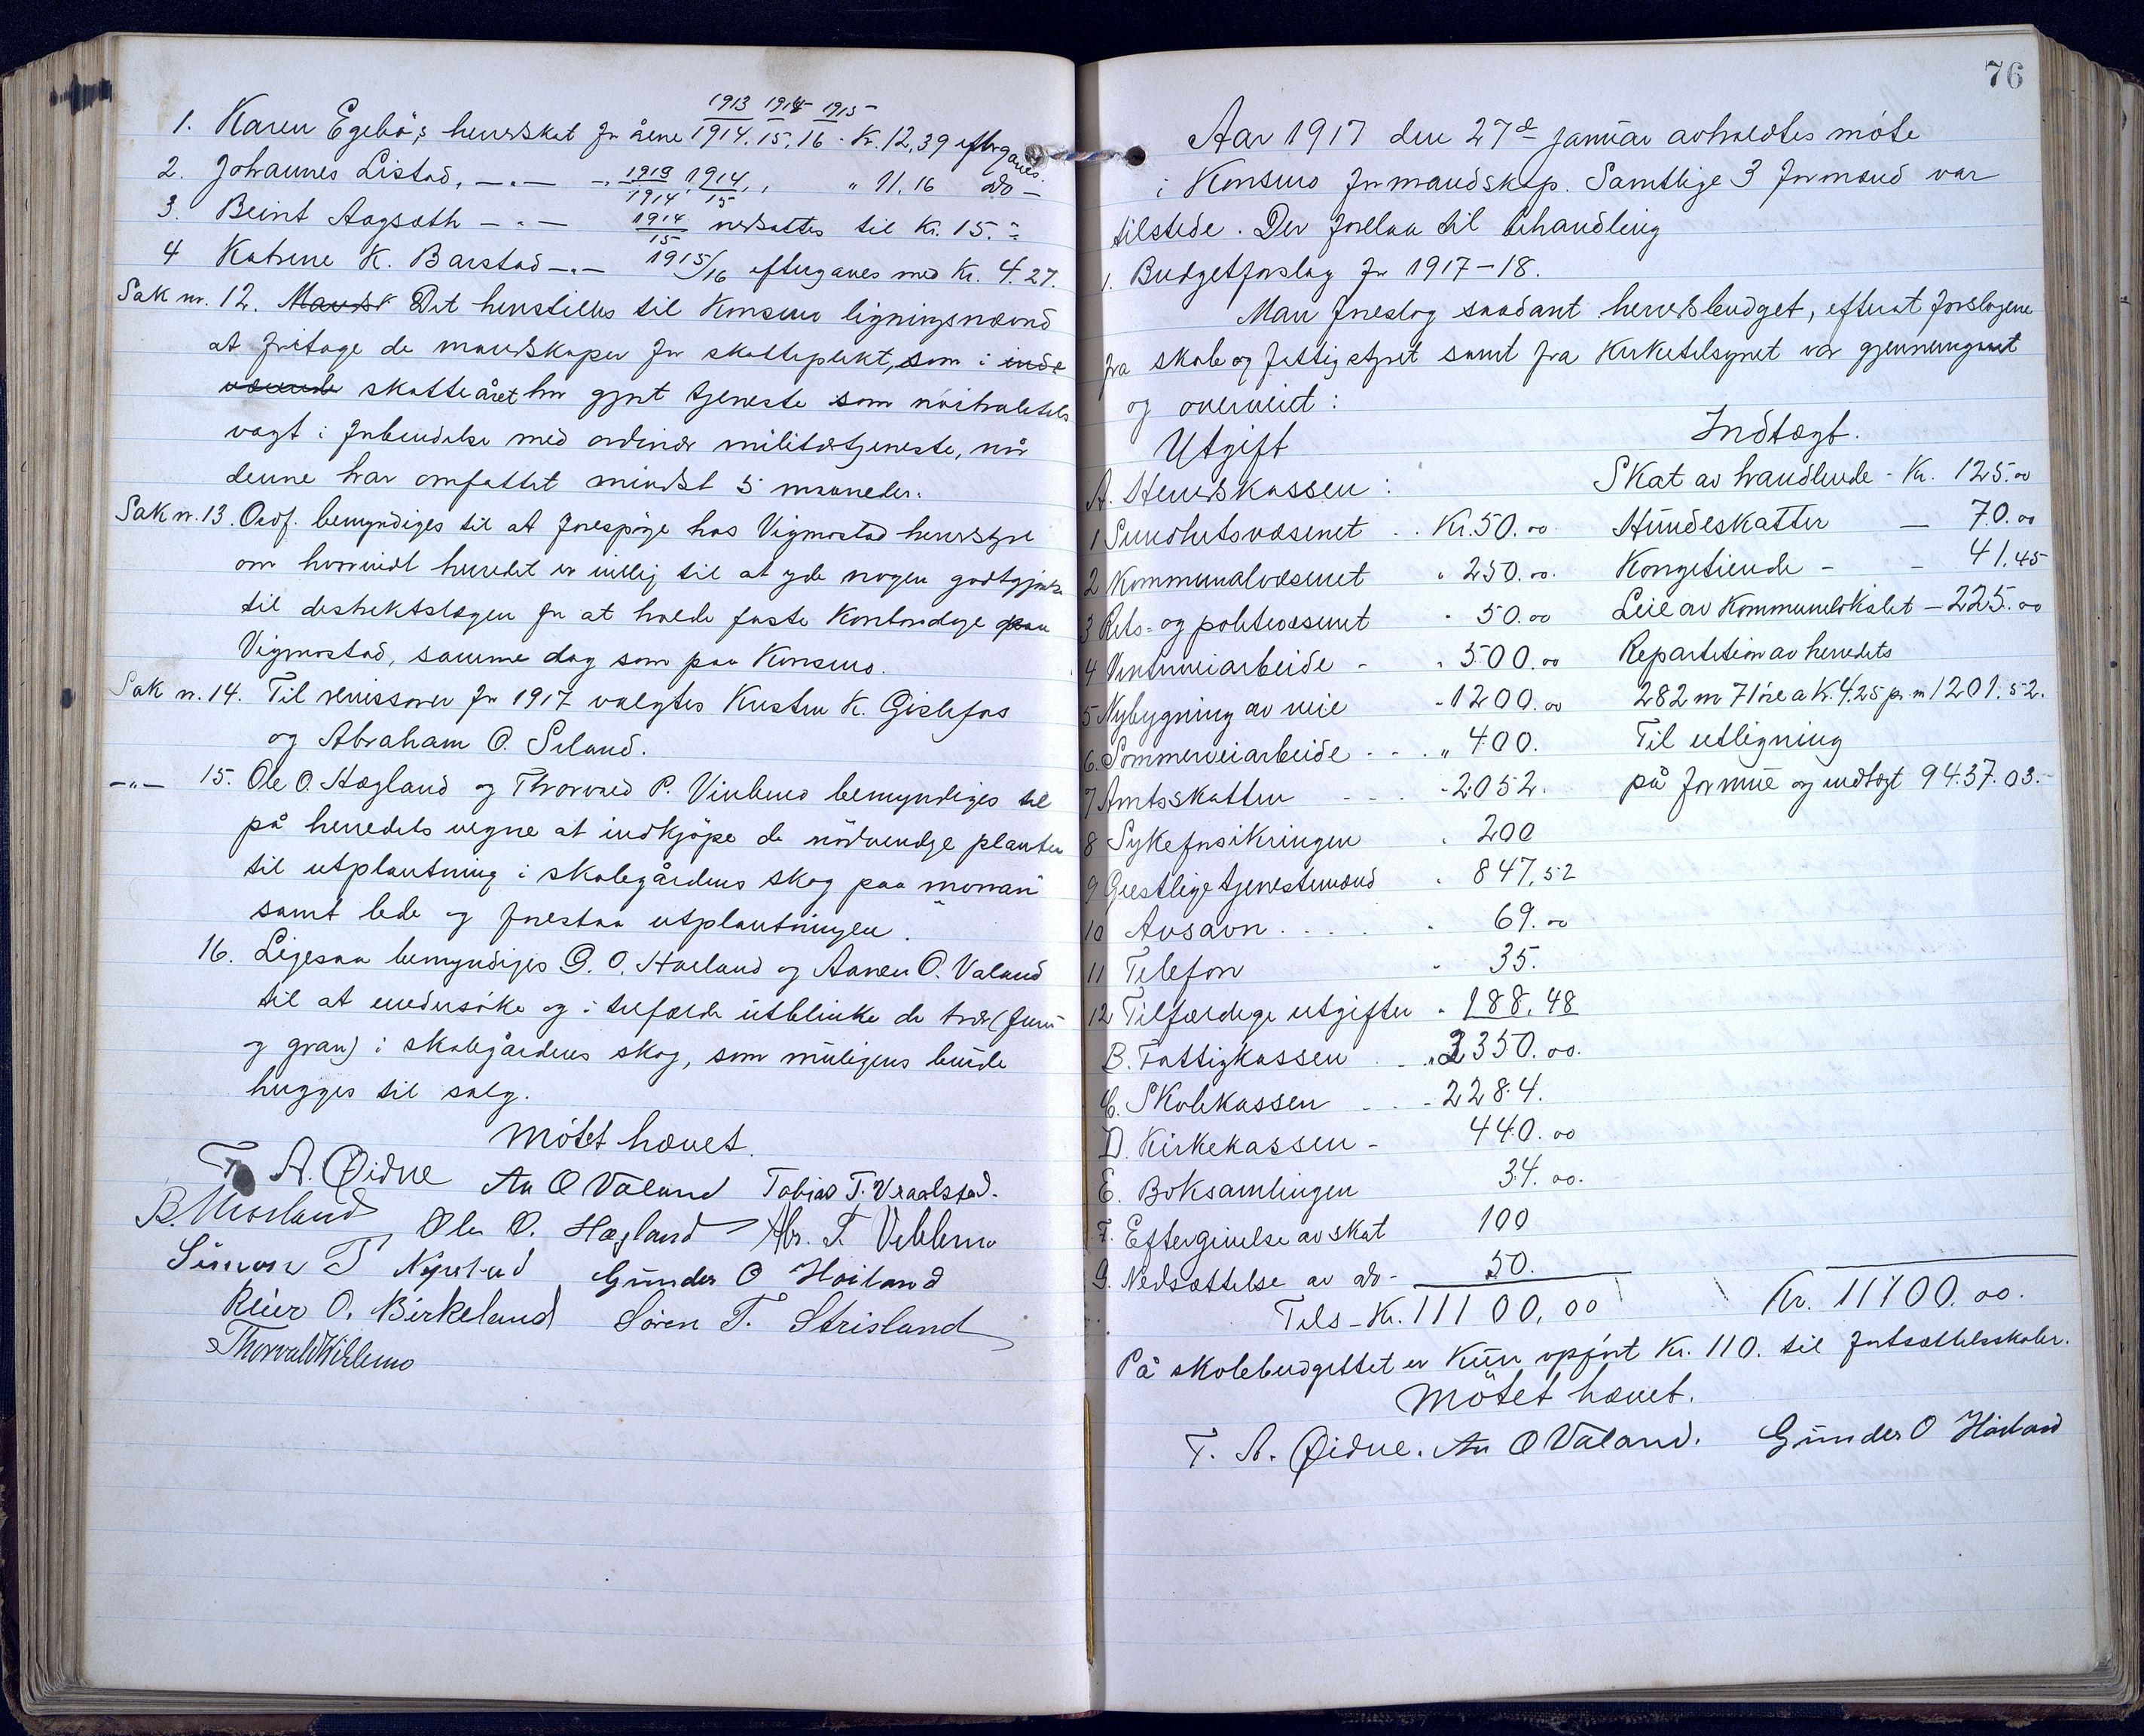 1913 1914 1915
1. Karen Egebø's herredskat for årene 1914. 15. 16 - Kr. 12,39 eftergaves.
2. Johannes Listad, —„— —„ 1913/1914, 1914/15, „ 11.16 do —
3. Beint Aagsæth —„— 1914/15 nedsattes til Kr. 15.-
4 Katrine K. Barstad —„— 1915/16 eftergaves med Kr. 4.27.
Sak nr. 12. Det henstilles til Konsmo ligningsnævnd
at fritage de mandskaper for skatteplikt, som i inde
værende skatteåret har gjort tjeneste som nøitralitets
vagt i forbindelse med ordinær militærtjeneste, når
denne har omfattet mindst 5 maaneder.
Sak nr. 13. Ordf. bemyndiges til at forespørge hos Vigmostad herredstyre
om hvorvidt herredet er villig til at yde nogen godtgjørelse
til distriktslægen for at holde faste kontordage paa
Vigmostad, samme dag som paa Konsmo.
Sak nr. 14. Til revisorer for 1917 valgtes Kristen K. Gislefos
og Abraham O. Seland.
—„— 15. Ole O. Hægland og Thorvald P. Viblemo bemyndiges til
på herredets vegne at indkjøpe de nødvendige planter
til utplantning i skolegårdens skog paa "monan"
samt lede og forestaa utplantningen.
16. Ligesaa bemyndiges G. O. Høiland og Aanen O. Valand
til at undersøke og i tilfælde utblinke de trær (furu
og gran) i skolegårdens skog, som muligens burde
hugges til salg.
Møtet hævet.
T. A. Øidne An O Valand Tobias T. Vraalstad.
B. Morland Ole O. Hægland Abr. T. Viblemo
Simon T Nepstad Gunder O Høiland
Reier O. Birkeland Søren T. Strisland
Thorvald Viblemo
76
Aar 1917 den 27de januar avholdtes møte
i Konsmo formandskap. Samtlige 3 formænd var
tilstede. Der forelaa til behandling
1. Budgetforslag for 1917-18.
Man foreslog saadant herredsbudget, efterat forslagene
fra skole og fattigstyret samt fra kirketilsynet var gjennemgaaet
og overveiet:
Utgift Indtægt.
A. Herredskassen: Skat av handlende - Kr. 125.00
1 Sundhetsvæsenet .. Kr. 50.00 Hundeskatter — 70.00
2 Kommunalvæsenet „ 250.00. Kongetiende - - 41.45
3 Rets- og politivæsenet „ 50.00 Leie av Kommunelokalet — 225.00
4 Vinterveiarbeide - „ 500.00 Repartition av herredets
5 Nybygning av veie - 1200.00 282 m 71 øre a K. 4.25 pr. m 1201.52.
6. Sommerveiarbeide - - „ 400. Til utligning
7 Amtsskatten - - - 2052. på formue og indtægt 9437.03.
8 Sykeforsikringen „ 200
9 Geistlige tjenestemænd „ 847,52
10 Avsavn . . . . „ 69.00
11 Telefon „ 35.
12 Tilfældige utgifter „ 188,48
B. Fattigkassen . „ 2350.00.
C. Skolekassen - - - 2284.
D. Kirkekassen - 440.00
E. Boksamlingen 34.00.
F. Eftergivelse av skat 100
G. Nedsættelse av do - 50.
Tils - Kr. 11100,00 Kr. 11100.00.
På skolebudgettet er kun opført Kr. 110. til fortsættelsesskoler.
Møtet hævet.
T. A. Øidne. An O Valand. Gunder O Høiland